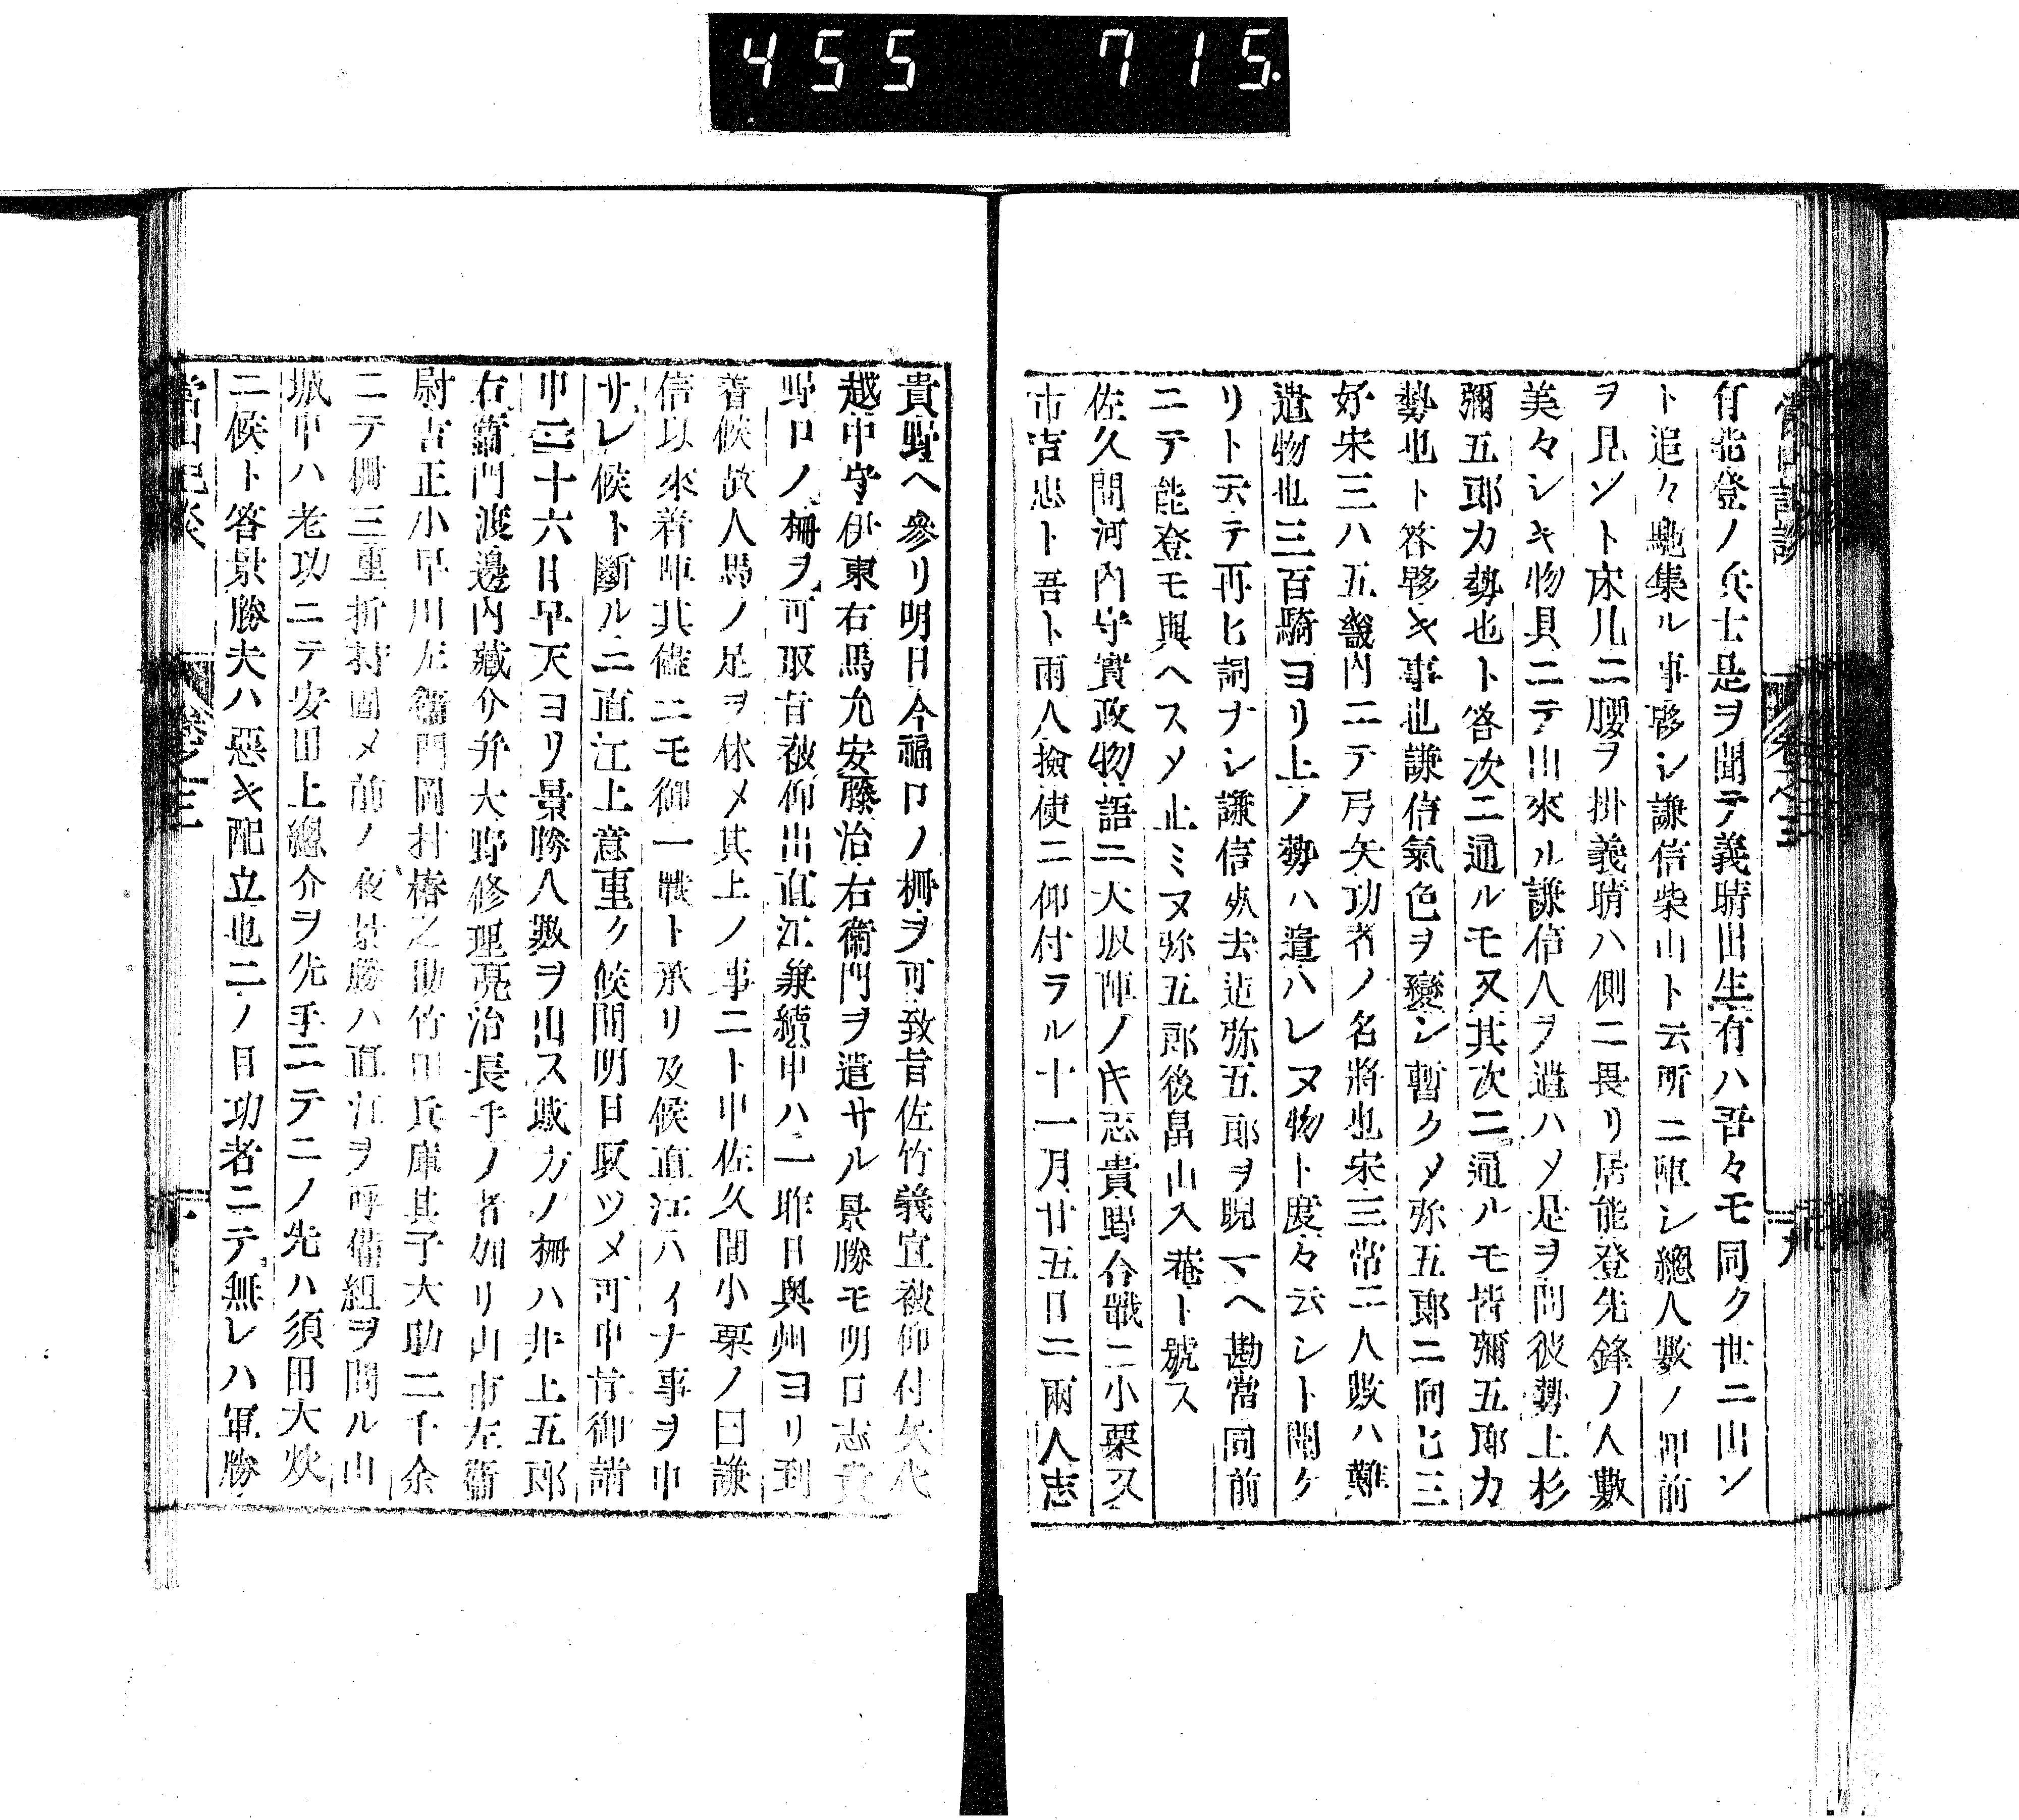 455 715.
常山紀談
卷之三
九
有能登ノ兵士是ヲ聞テ義晴出生有ハ吾々モ同ク世ニ出ン
ト追々馳集ル事夥シ謙信柴山ト云所ニ陣シ總人數ノ押前
ヲ見ント床几ニ腰ヲ掛義晴ハ側ニ畏リ居能登先鋒ノ人數
美々シキ物具ニテ出來ル謙信人ヲ遣ハメ是ヲ問彼勢上杉
彌五郎カ勢也ト答次ニ通ルモ又其次ニ通ルモ皆彌五郎カ
勢也ト答夥キ事也謙信氣色ヲ變シ暫クメ弥五郎ニ向ヒ三
好宋三ハ五畿内ニテ弓矢功者ノ名將也宋三常ニ人數ハ難
遣物也三百騎ヨリ上ノ勢ハ遣ハレヌ物ト度々云シト聞ケ
リト云テ再ヒ詞ナシ謙信死去迠弥五郎ヲ睨マヘ勘當同前
ニテ能登モ與ヘスメ止ミヌ弥五郎後畠山入菴ト號ス
佐久間河内守實政物語ニ大坂陣ノ時志貴野合戰ニ小栗又
市吉忠ト吾ト兩人撿使ニ仰付ラル十一月廿五日ニ兩人志
貴野ヘ參リ明日今福口ノ柵ヲ可致旨佐竹義宣被仰付矢代
越中守伊東右馬允安藤治右衞門ヲ遣サル景勝モ明日志貴
野口ノ柵ヲ可取旨被仰出直江兼續申ハ一昨日奧州ヨリ到
着候故人馬ノ足ヲ休メ其上ノ事ニト申佐久間小栗ノ曰謙
信以來着陣其儘ニモ御一戰ト承リ及候直江ハイナ事ヲ申
サレ候ト斷ルニ直江上意重ク候間明日取ツメ可申旨御請
申二十六日早天ヨリ景勝人數ヲ出ス城方ノ柵ハ井上五郎
右衞門渡邊内藏介并大野修理亮治長手ノ者加リ山市左衞
尉吉正小早川左衞門岡村椿之助竹田兵庫其子大助二千余
ニテ柵三重折村圍メ前ノ夜景勝ハ直江ヲ呼備組ヲ問ル山
城申ハ老功ニテ安田上總介ヲ先手ニテ二ノ先ハ須田大炊
ニ候ト答景勝夫ハ惡キ配立也二ノ目功者ニテ無レハ軍勝
常山紀談
卷之三
十